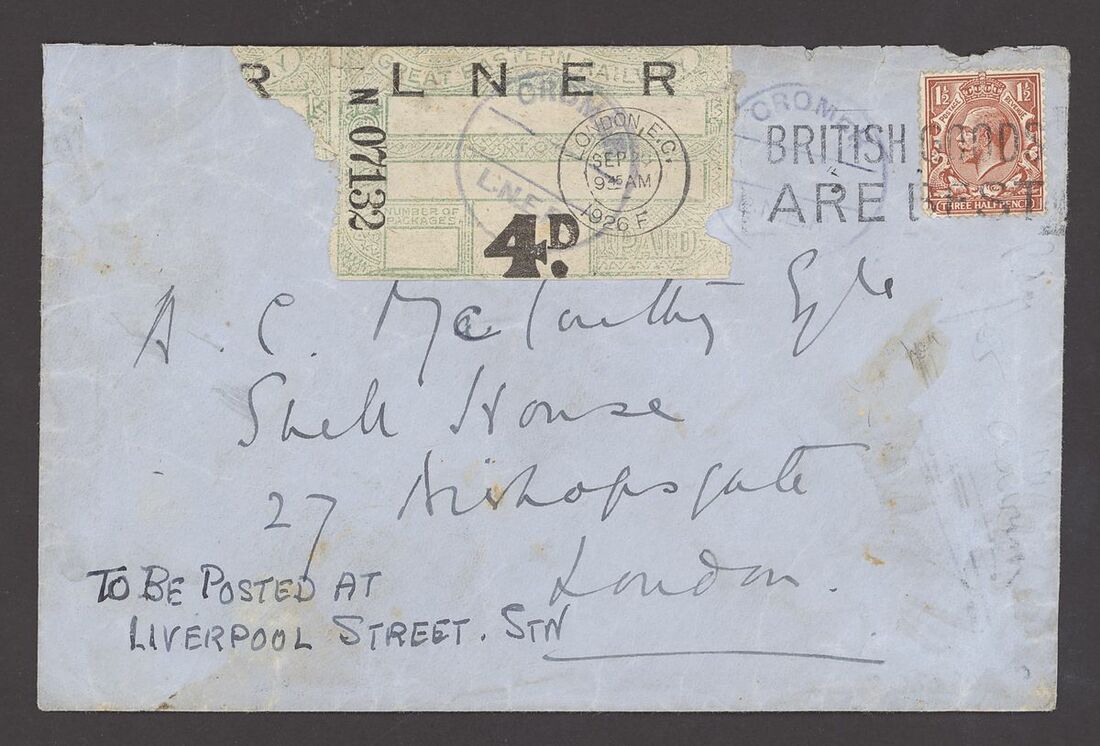 R LNER
GREAT EASTERN RAILWAY
N 07132
NUMBER OF PACKAGES
4D.
PAID
CROMER
L.N.E.R.
LONDON. E.C.
SEP
9 45 AM
1926 F
CROMER
BRITISH GOODS
ARE BEST
1½ 1½
POSTAGE REVENUE
THREE HALFPENCE
A. C. MacCarthy Esqre
Shell House
27 Bishopsgate
London.
TO BE POSTED AT
LIVERPOOL STREET. STN